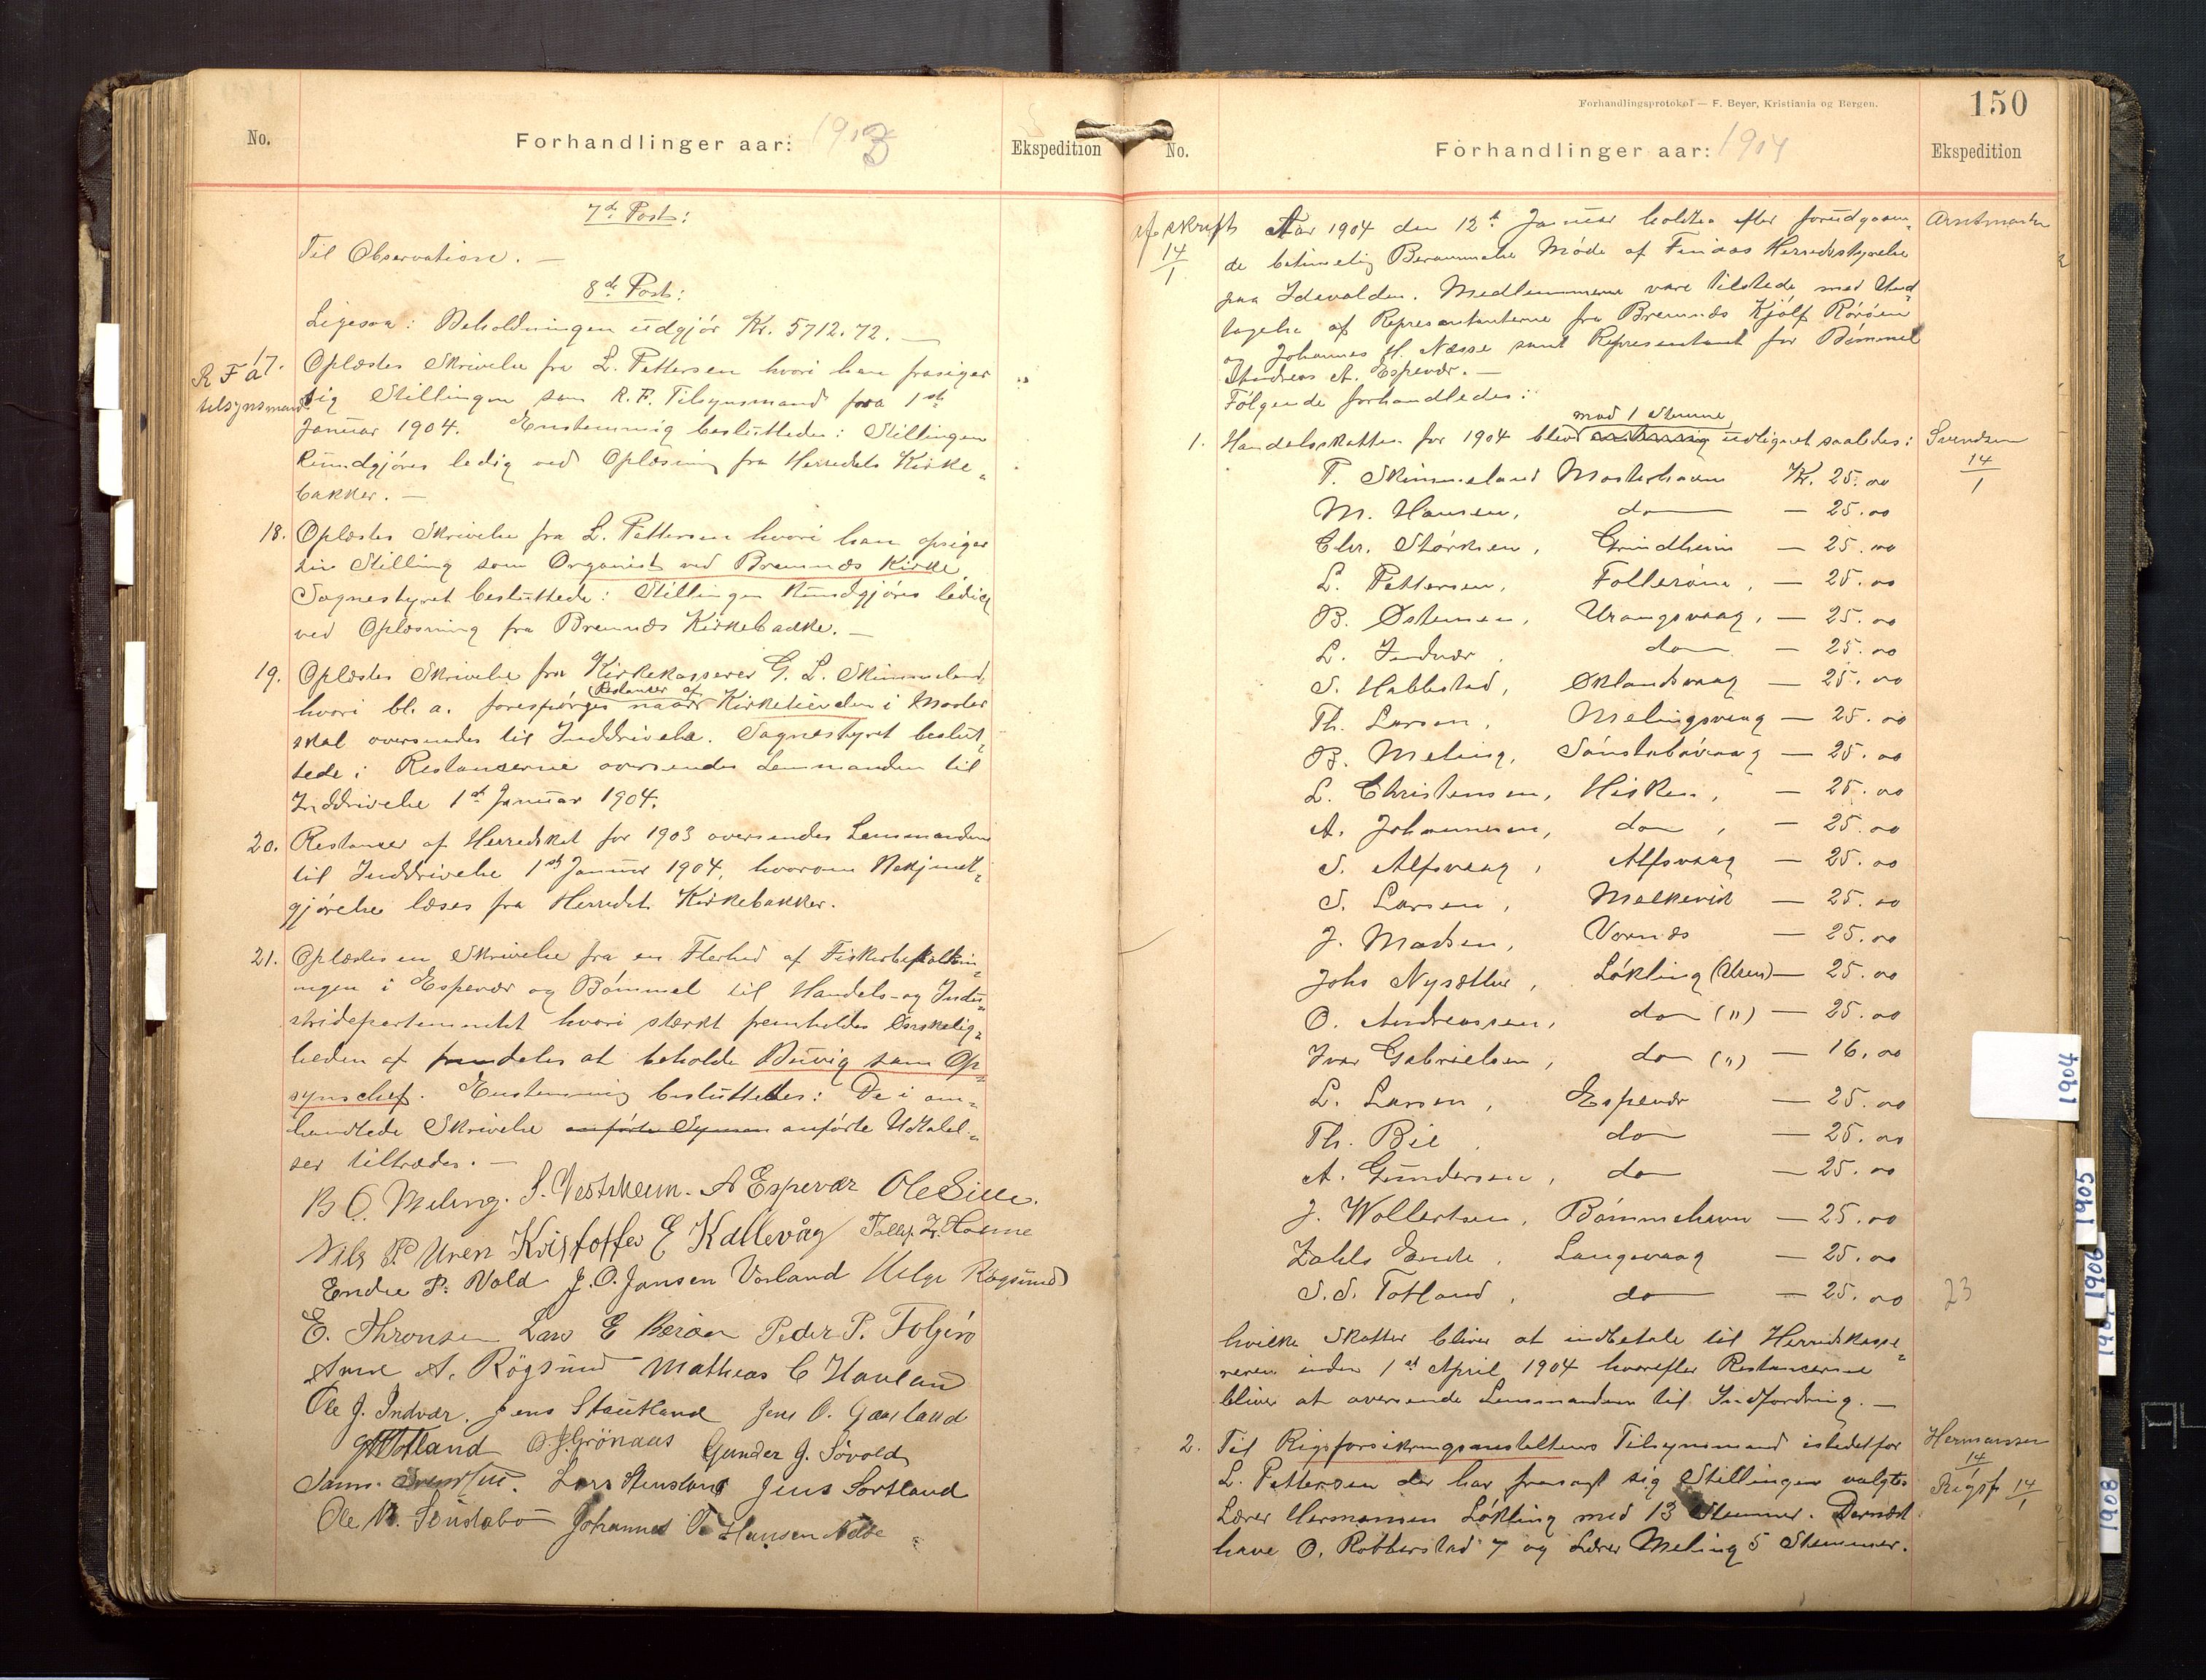 No.
Forhandlinger aar: 1903
Ekspedition
7de Post:
Til Observation. —
8de Post:
Ligesaa: Beholdningen udgjør Kr. 5712.72. —
R F A
tilsynsmand
17. Oplæstes Skrivelse fra L. Pettersen hvori han frasiger
sig Stillingen som R. F. Tilsynsmand fra 1ste
Januar 1904. Enstemmig besluttedes: Stillingen
kundgjøres ledig ved Oplæsning fra Herredets Kirke„
bakker. —
18. Oplæstes Skrivelse fra L. Pettersen hvori han opsiger
sin Stilling som Organist ved Bremnes Kirke
Sognestyret besluttede: Stillingen kundgjøres ledig
ved Oplæsning fra Bremnes Kirkebakke. —
19. Oplæstes Skrivelse fra Kirkekasserer G. L. Skimmeland
hvori bl. a. forespørges naar Restancer af Kirketienden i Moster
skal oversendes til Inddrivelse. Sognestyret beslut„
tede: Restancerne oversendes Lensmanden til
Inddrivelse 1st Januar 1904.
20. Restancer af Herredskat for 1903 oversendes Lensmanden
til Inddrivelse 1st Januar 1904, hvorom Bekjendt„
gjørelse læses fra Herredets Kirkebakker.
21. Oplæstes en Skrivelse fra en Flerhed af Fiskerbefolkn„
ingen i Espevær og Bømmel til Handels- og Indu„
stridepartementet hvori stærkt fremholdes Ønskelig„
heden af fremdeles at beholde Buvig som Op„
synschef. Enstemmig besluttedes: De i om„
handlede Skrivelse anførte Synsm anførte Udtalel„
ser tiltrædes. —
B O. Meling. S. Vestvheim. A Espevær Ole Sille.
Nils P Uren Kristoffer E Kallevåg Tollef Z. Holme
Endre P. Vold J. O. Jansen Vorland Helge Røgsund
E. Thronsen Lars E Berøen Peder P. Folgerø
Arne A. Rögsund Mathias C Havland
Ole J. Indvær. Jens Stautland Jens O. Gaasland
G Totland O. J. Grönaas Gunder G. Såvold
Sams. Lars Stensland Jens Sortland
Ole M. Sønstabø Johannes T. Hansen Nesse
Forhandlingsprotokol — F. Beyer, Kristiania og Bergen.
150
No.
Forhandlinger aar: 1904
Ekspedition
afskrift 14/1
Aar 1904 den 12te Januar holdtes efter forudgaaen„
de betimelig Berammelse Møde af Finaas Herredsstyrelse
paa Idevolden. Medlemmerne vare tilstede med Und„
tagelse af Representanterne fra Bremnes Kjølf Rørøen
og Johannes H. Næsse samt Representant for Bømmel
Andreas A. Espevær. —
Følgende forhandledes:
Amtmanden
1. Handelsskatten for 1904 blev enstemmig mod 1 Stemme udlignet saaledes:
Svendsen 14/1
T. Skimmeland Mosterhavn Kr. 25.00
M. Hansen, do — 25.00
Chr. Størksen, Grindheim — 25.00
L. Pettersen, Follerøen, — 25.00
B. Østensen, Urangsvaag, — 25.00
L. Indvær, do — 25.00
S. Habbestad, Øklandsvaag — 25.00
Th. Larsen, Melingsvaag — 25.00
B. Meling, Sønstabøvaag — 25.00
L. Christensen, Hisken, — 25.00
A. Johannesen, do, — 25.00
S. Alfsvaag, Alfsvaag — 25.00
S. Larsen, Melkevik — 25.00
J. Madsen, Vornes — 25.00
Johs Nysæther, Løkling (Uren) — 25.00
O. Andreassen, do (") — 25.00
Ivar Gabrielsen, do (") — 16.00
L. Larsen, Espevær — 25.00
Th. Bie do — 25.00
A. Gundersen, do — 25.00
J. Wollertsen, Bømmelhavn — 25.00
Zahls Enke, Langevaag — 25.00
S. S. Totland, do — 25.00
23
hvilke Skatter bliver at indbetale til Herredskasse„
reren inden 1st April 1904 hvorefter Restancerne
bliver at oversende Lensmanden til Indfordring. —
2. Til Rigsforsikringsanstaltens Tilsynsmand istedetfor
L. Pettersen der har frasagt sig Stillingen valgtes
Lærer Hermansen Løkling med 13 Stemmer. Dernæst
have O. Robberstad 7 og Lærer Meling 5 Stemmer.
Hermansen
14
Rigsf. 14/1
1904
1905
1906
1908